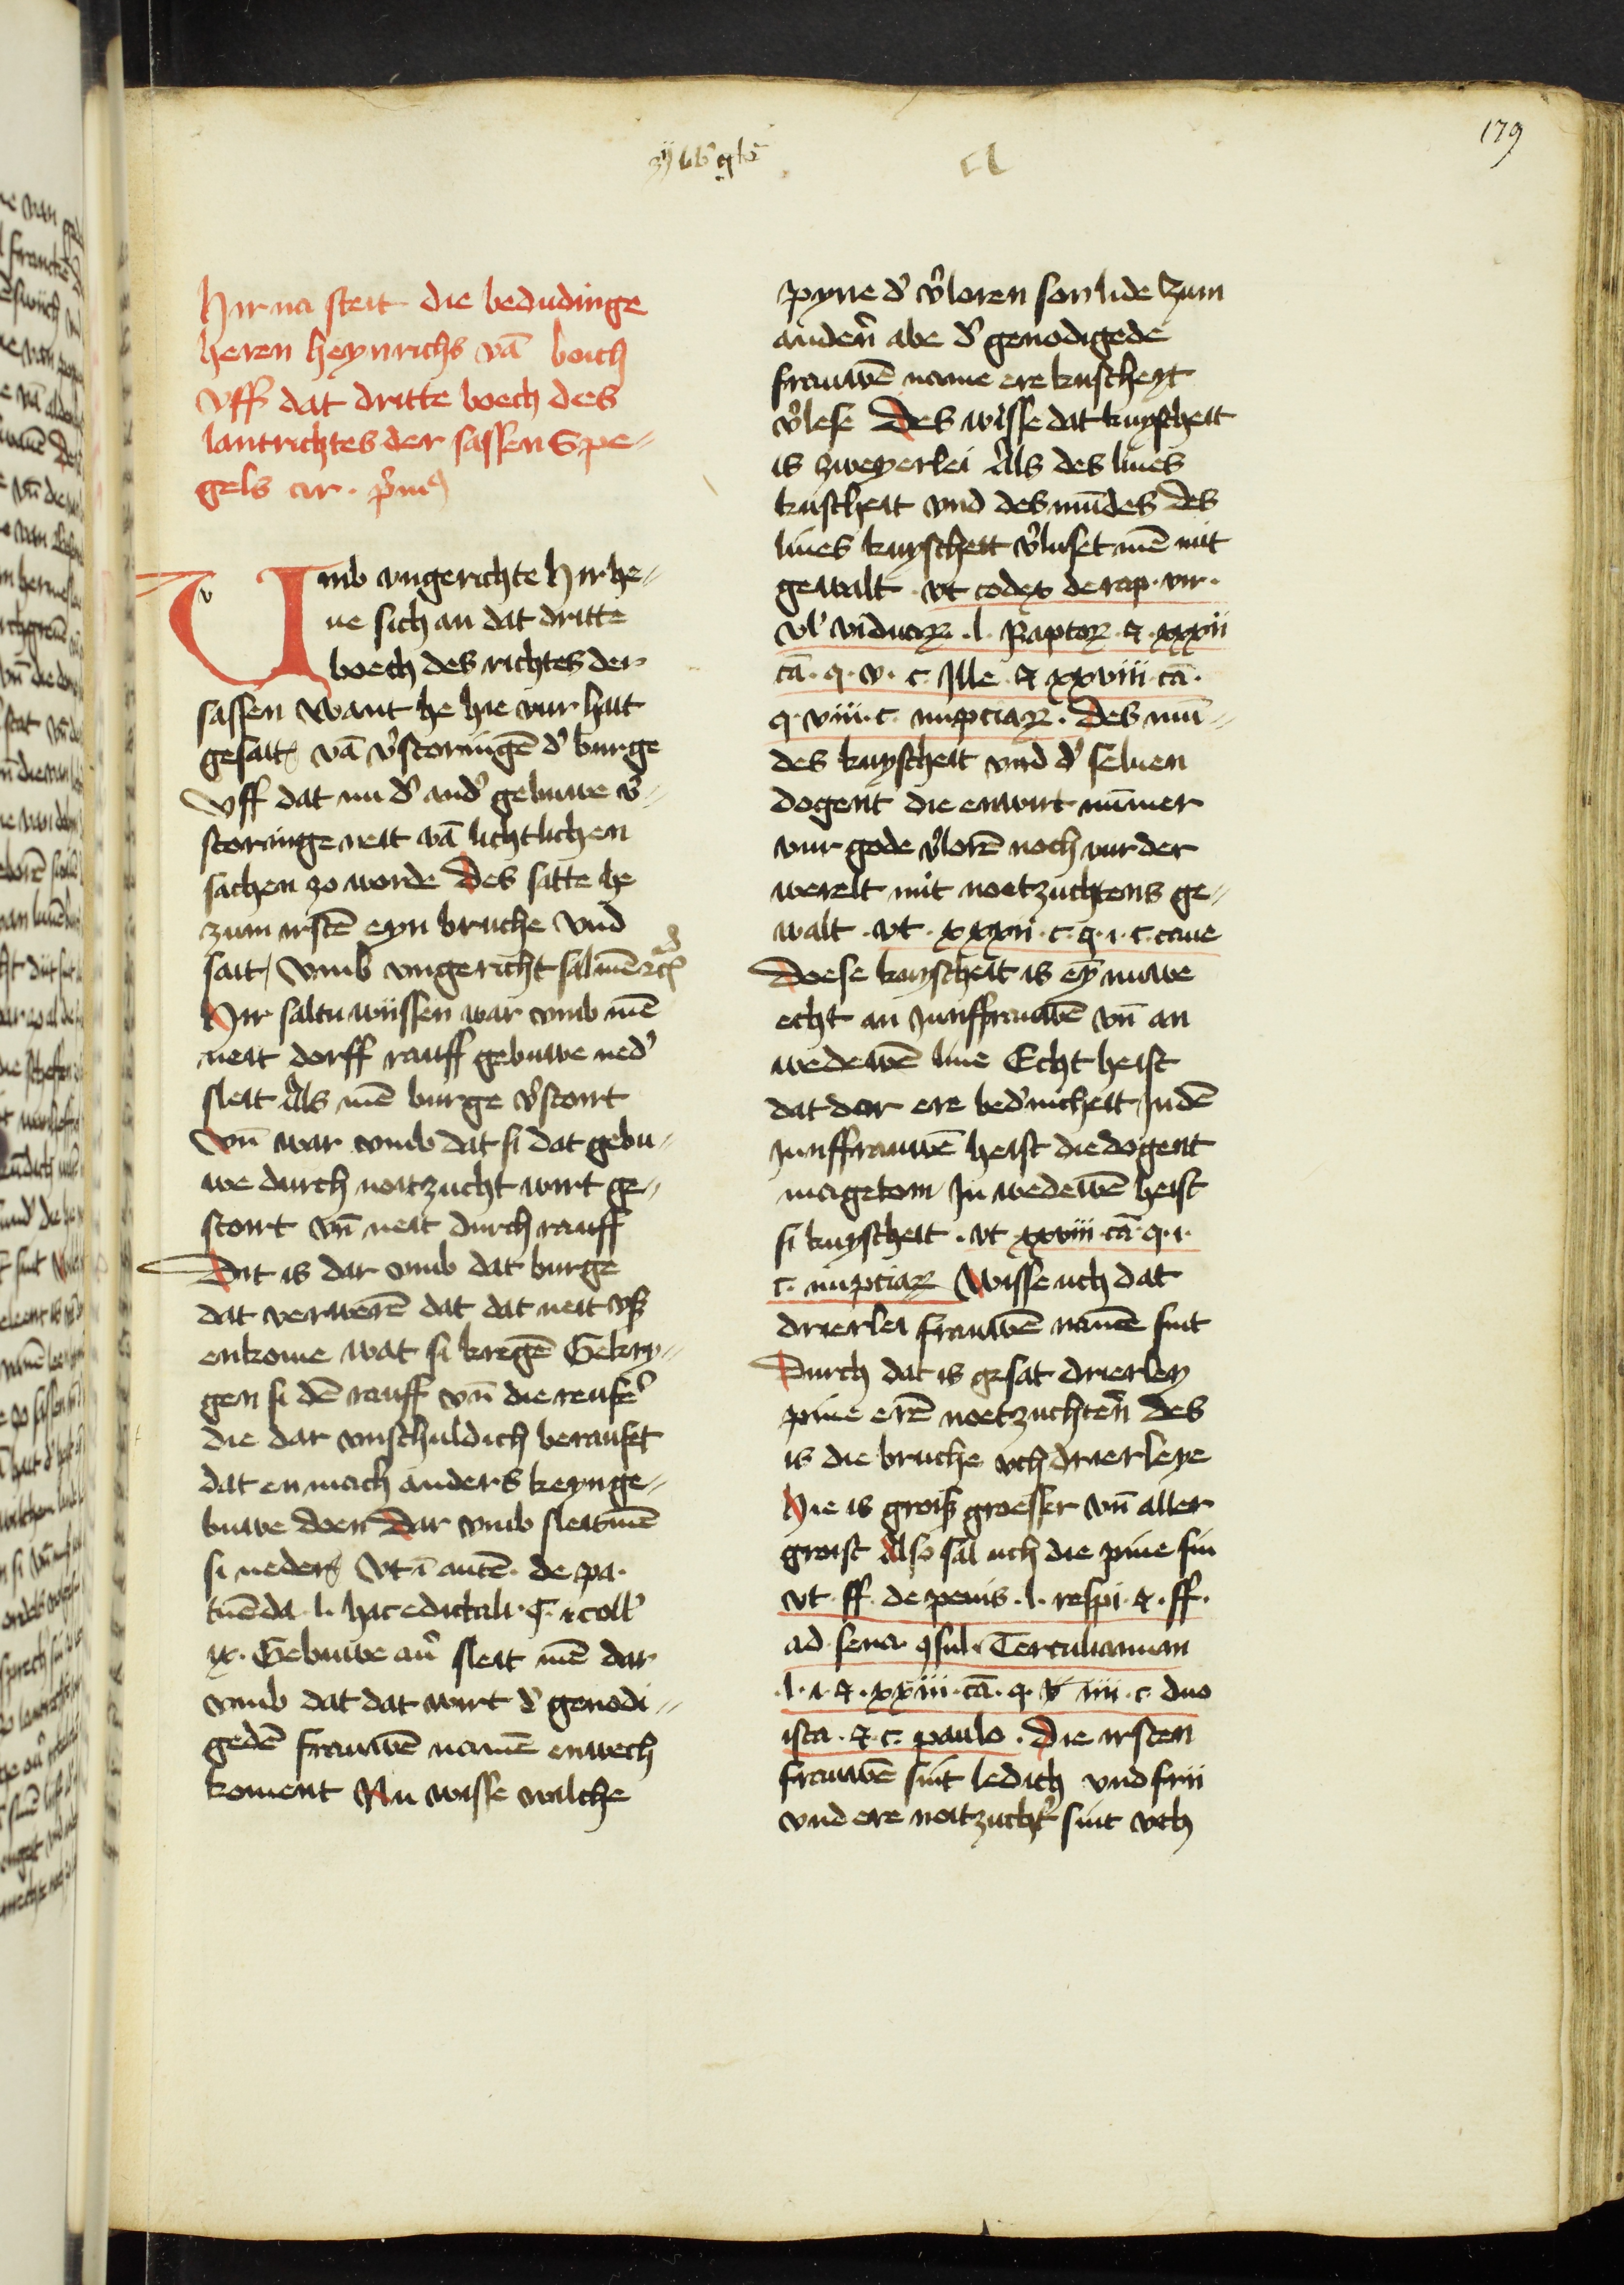 179
Hir na steit die bedudinge
heren heynrichs vā boich
vff dat dritte boech des
lantrichtes der sassen Spe„
gels ar. p̄mꝰ
Umb vngerichte Hir he„
ue sich an dat dritte
boech des richtes der
sassen Want he hie vur hait
gesait vā v̾storingē d̾ burge
vff dat nu d̾ and̾ gebuwe v̾„
storinge neit vā lichtlichen
sachen zo worde Des satte he
zum irstē eyn bruche vnd
sait vmb vngericht sal mē
Hir saltu wissen war vmb mē
neit dorff rauff gebuwe ned̾
sleit Als mē burge v̾stoirt
Vn̄ war vmb dat si dat gebu„
we durch noitzucht wirt ge„
stoirt vn̄ neit durch rauff
Dit is dar vmb dat burge
dat verwerē dat dat neit vß
enkome wat si kregē Gekry„
gen si dē rauff vn̄ die reufe̾
die dar vnschuldich beraufet
dat en mach anders keyn ge„
buwe doen Dar vmb sleit mē
si neder Vt ī autē. de pa.
tuēda. l. hac edictali. coll̾
ix. Gebuwe au̾ sleit mē dar
vmb dat dat wirt d̾ genodi„
gedē frauwē namē enwech
koment Nu wisse wilche
pyne d̾ v̾loren son lide Zum
anderē abe d̾ genodigede
frauwē name ere kuscheyt
v̾lese Des wisse dat kuyscheit
is zweyerlei Als des liues
kuscheit vnd des mūdes Des
liues kuyscheit v̾luset mē mit
gewalt. vt codex de rap. vir.
vl̾ viduaꝝ. l. Raptoꝝ. ⁊. xxxii
cā. q. v. c. Ille. ⁊ xxviii. cā.
q. viii. c. nupciaꝝ. Des mū„
des kuyscheit vnd d̾ seluen
dogent die enwirt nūmer
vur gode v̾lorē noch vur der
werelt mit noitzuchtens ge„
walt. vt. xxxii. c. q. i. c. caue
Doese kuyscheit is eȳ nuwe
echt an Junffrauwē vn̄ an
wedewē liue Echt heist
dat dar ere bed̾uicheit In dē
Junffrauwē heist die dogent
magetom In wedewē heist
si kuyscheit. vt xxviii. cā. q. i.
c. nupciaꝝ Wisse uch dat
drierlei frauwē namē sint
Durch dat is gesat drierley
pine erē noetzuchterē Des
is die bruche uch drierleye
Hie is groiß groesser vn̄ aller
groist Also sal uch die pine sin
vt. ff. de penis. l. respi. ⁊. ff.
ad sena. ꝯsul. Terculianum
.l. i. ⁊. xxiii. cā. q. iiii. c. duo
ista. ⁊. c. paulo. Die irsten
frauwē sint ledich vnd frii
vnd ere noitzucht̾ sint vch